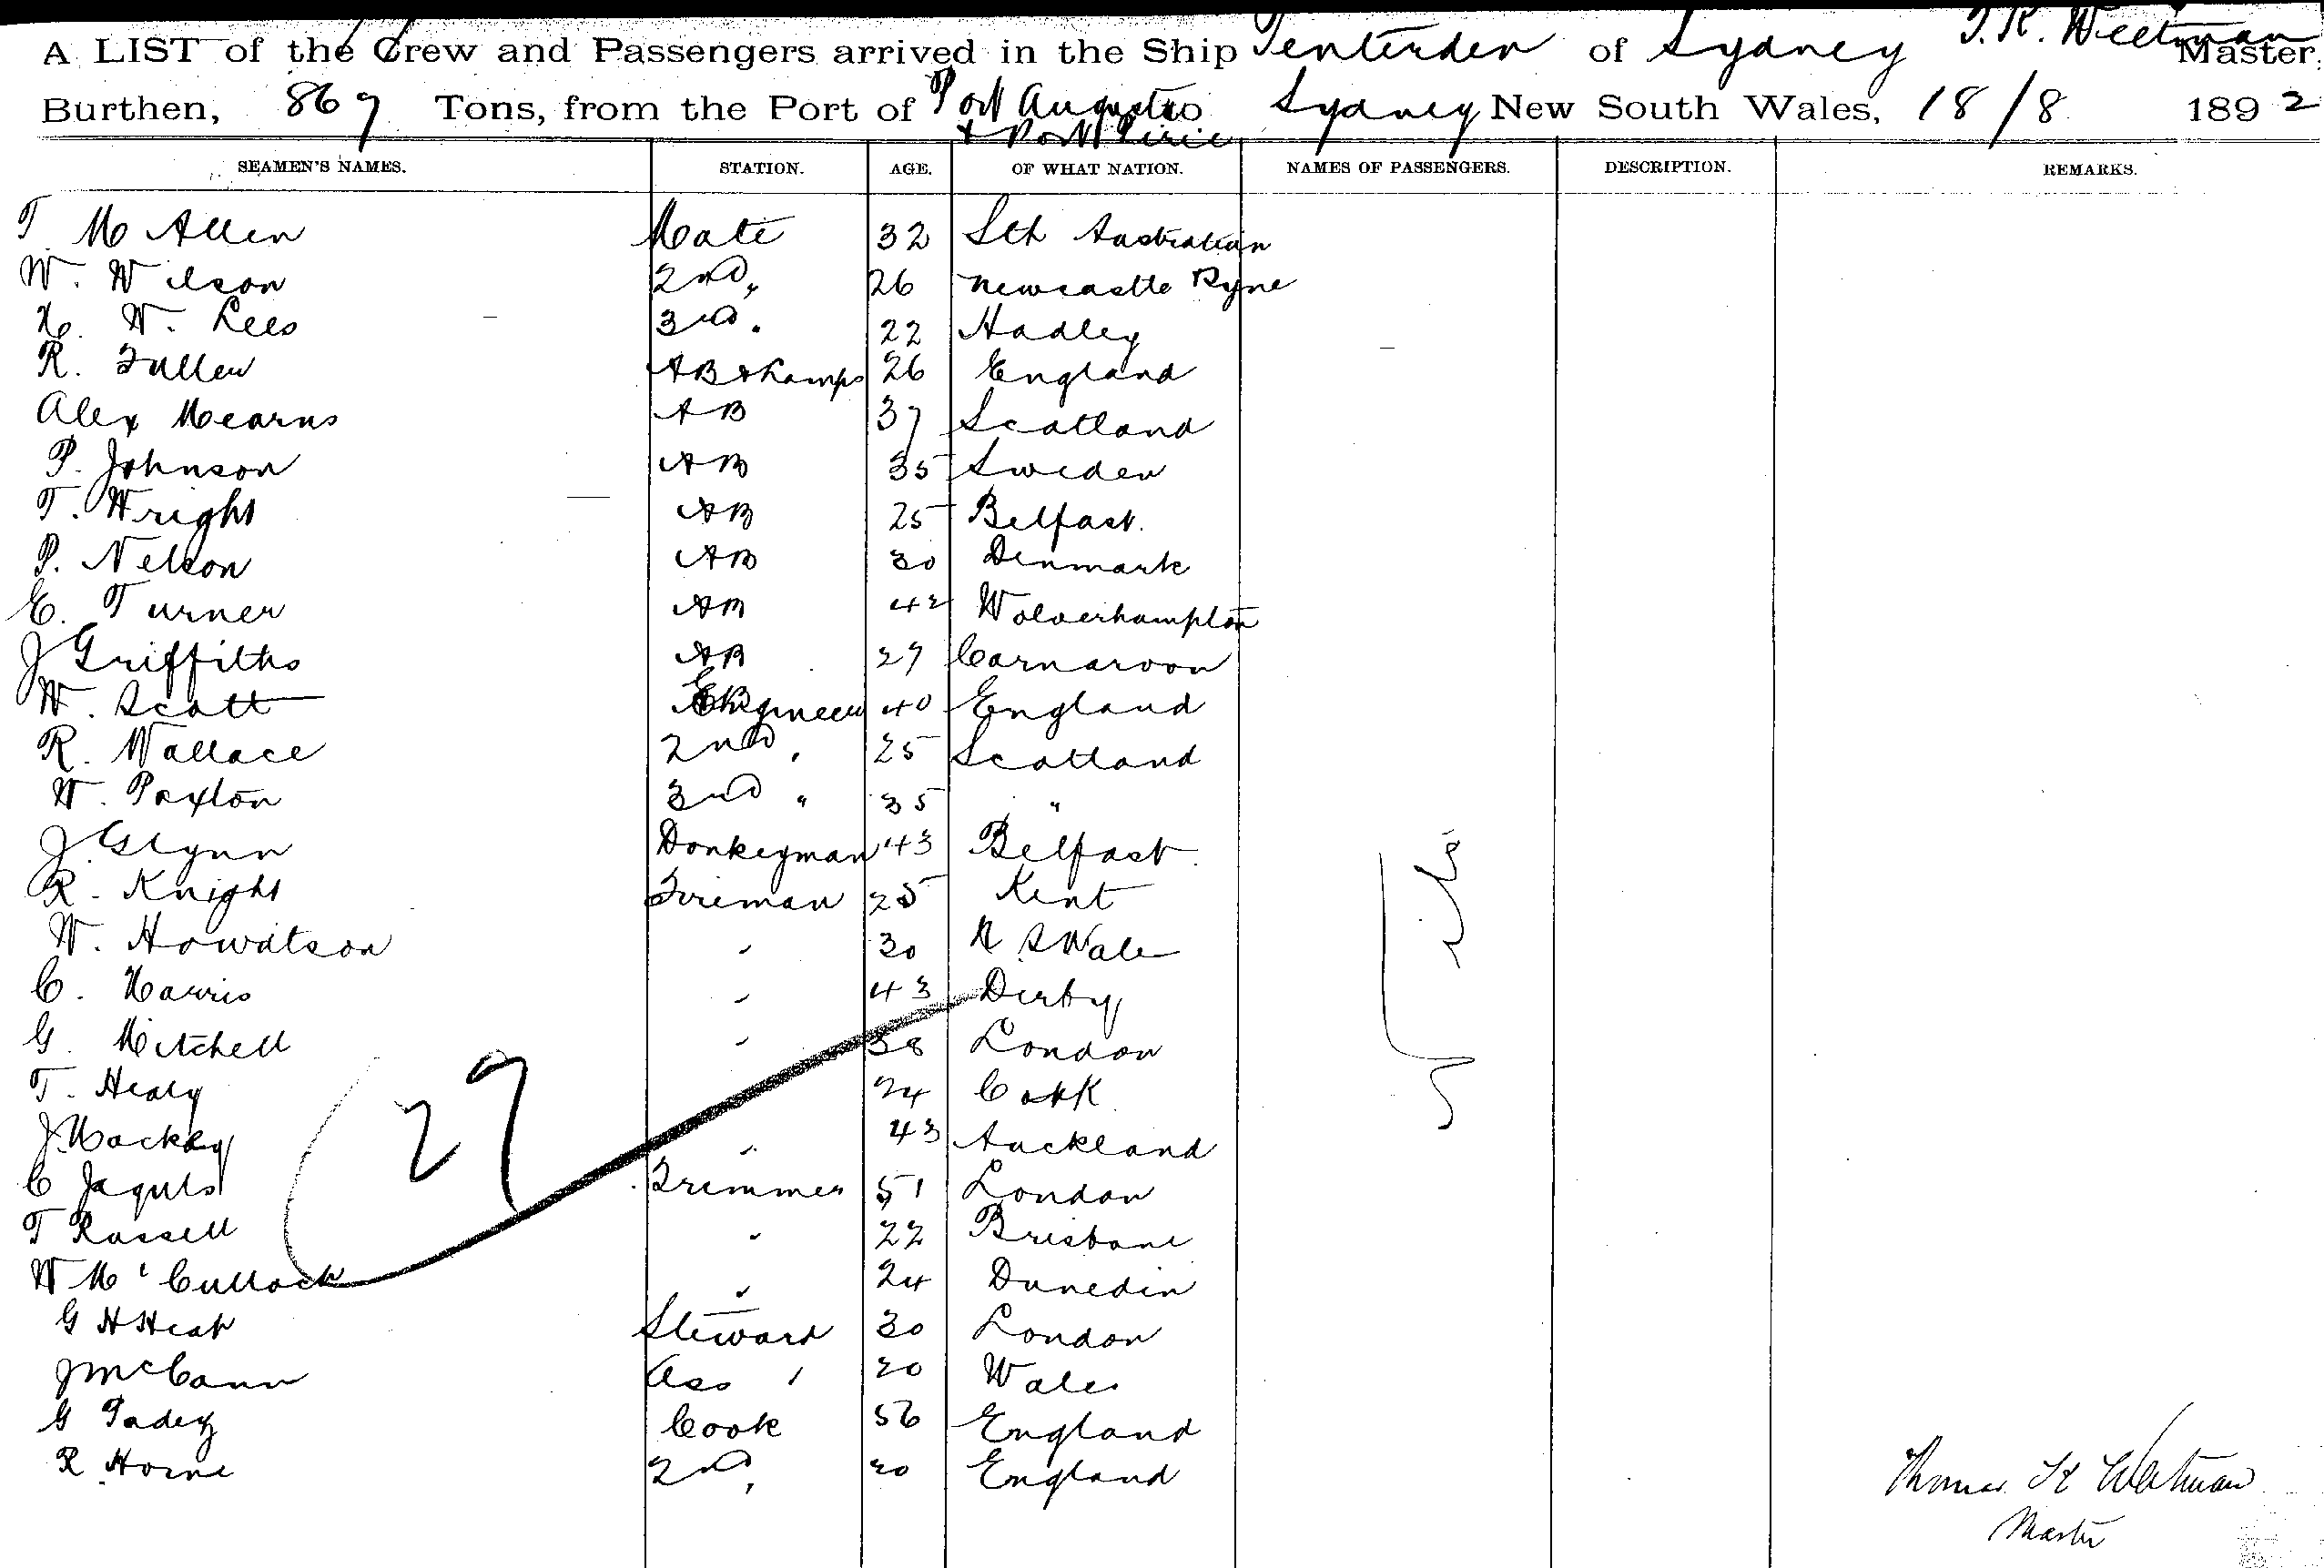 A LIST of the Crew and Passengers arrived in the Ship Tenterden of Sydney T. K. Weetman Master,
Burthen, 869 Tons, from the Port of Port Augusta & Port Pirie Sydney New South Wales, 18/8 1892
SEAMEN'S NAMES. STATION. AGE. OF WHAT NATION. NAMES OF PASSENGERS. DESCRIPTION. REMARKS.
T Mc Allen Mate 32 Sth Australian
W. Wilson 2nd " 26 Newcastle Tyne
H. W. Lees 3rd " 22 Hadley
R. Fuller AB & Lamps 26 England
Alex Mearns AB 37 Scotland
P. Johnson AB 35 Sweden
T. Wright AB 25 Belfast.
P. Nelson AB 30 Denmark
E. Turner AB 42 Wolverhampton
J Griffiths AB 27 Carnarvon
W. Scott Engineer 40 England
R. Wallace 2nd " 25 Scotland
W. Paxton 3rd " 35 "
J. Glynn Donkeyman 43 Belfast.
R. Knight Fireman 25 Kent
W. Howatson " 30 N S Wales
C. Harris " 43 Derby
G. Mitchell " 38 London
T. Healy 24 Cork
J. Mackay " 43 Auckland
C Jaques Trimmer 51 London
T Russell " 22 Brisbane
W Mc Cullock " 24 Dunedin
G H Heap Steward 30 London
J McCann Ass " 20 Wales
G Padey Cook 56 England
R Horne 2nd " 20 England
27
Thomas K Weetman
Master